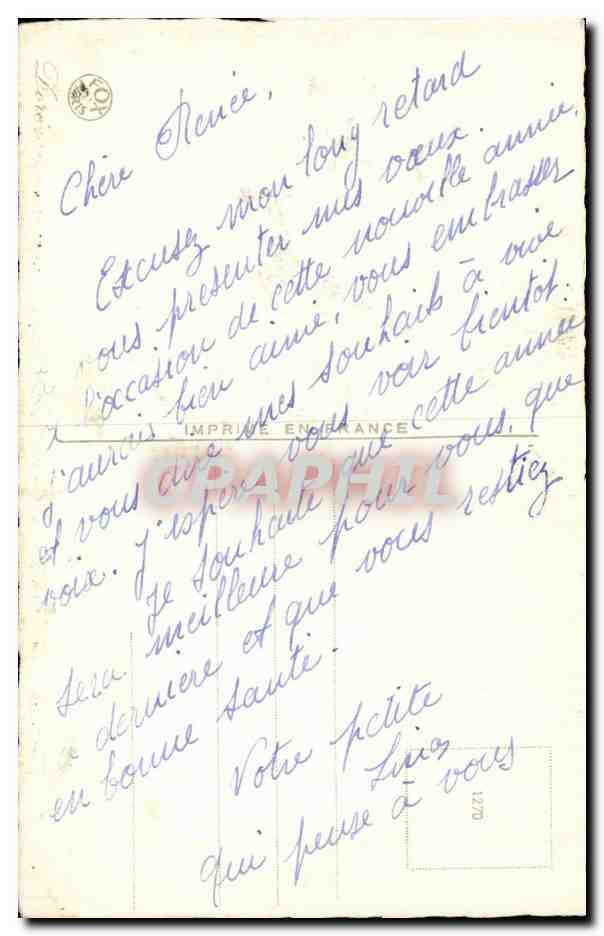 FOX
PARIS
Chère Renée,
Excusez mon long retard
vous présenter mes vœux.
l'occasion de cette nouvelle année,
J'aurais bien aimé, vous embrasser
et vous dire mes souhaits à vive
voix. J'espère vous voir bientôt.
Je souhaite que cette année
sera meilleure pour vous, que
dernière et que vous restiez
en bonne santé.
Votre petite
qui pense à vous
IMPRIMÉ EN FRANCE
CPAPHIL
1270